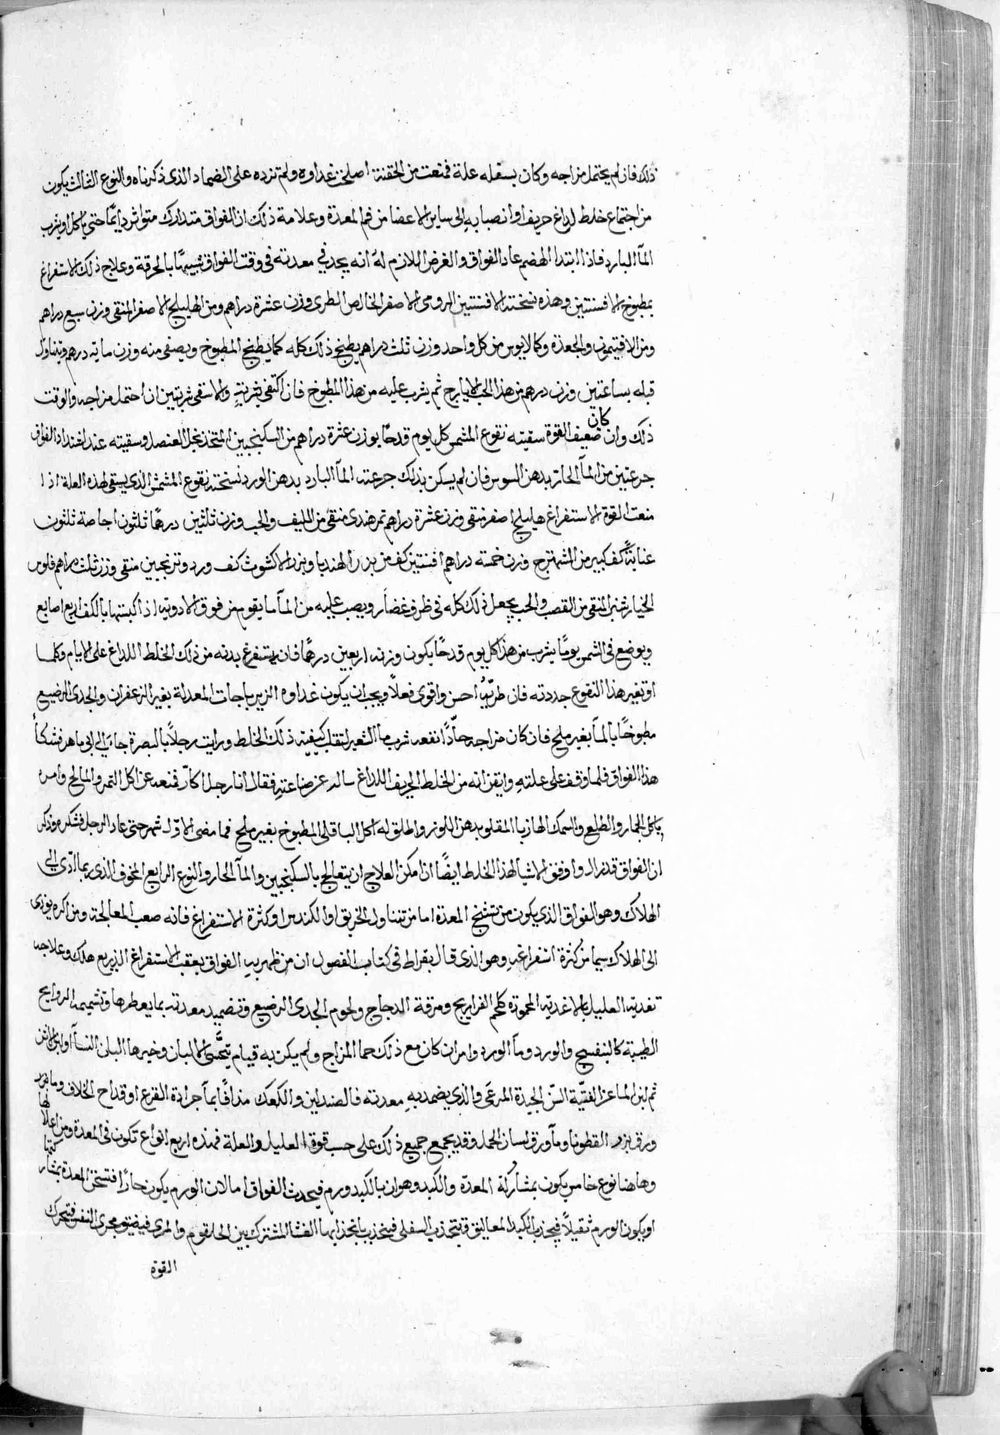 ذلك فان لم يحتمل مزاجه وكان بسفله علة فمنعت من الحقنة اصلحت غداوه ولم تزده على الضماد الذى ذكرناه والنوع الثالث يكون
من اجتماع خلط لداغ حريف او انصبابه الى ساير الاعضا من فم المعدة وعلامة ذلك ان الفواق متدارك متواتر دايمًا حتى ياكل او يشرب
المآ البارد فاذا ابتدا الهضم عاد الفواق والعرض اللازم له انه يجد في معدته فى وقت الفواق شبيهًا بالحرقة وعلاج ذلك الاستفراغ
بمطبوخ الافسنتين وهذه نسخته الافسنتين الرومى الاصفر الخالص الطرى وزن عشرة دراهم ومن الهليلج الاصفر المنقى وزن سبع دراهم
ومن الافتيمون والجعدة وكمالايوس من كل واحد وزن ثلث دراهم يطبخ ذلك كله كما يطبخ المطبوخ ويصفى منه وزن مايه درهم ويتناول
قبله بساعتين وزن درهم من هذا الحب الايارج ثم يشرب عليه من هذا المطبوخ فان اكتفى بشربتٍه والا سقى شربتين ان احتمل مزاجه والوقت
ذلك وان كان ضعيف القوة سقيته نقوع المشمش كل يوم قدحًا بوزن عشرة دراهم من السكنجبين المتخذ بخل العنصل وسقيته عند اشتداد الفواق
جرعتين من المآ الحار بدهن السوس فان لم يسكن بذلك جرعته المآ البارد بدهن الورد نسخته نقوع المشمش الذى يسقى لهذه العلة اذا
منعت القوة الاستفراغ هليلج اصفر منقى وزن عشرة دراهم تمر هندى منقى من الليف والحب وزن ثلثين درهمًا ثلثون اجاصة ثلثون
عنابةً كف كبير من الشهترج وزن خمسة دراهم افسنتين كف من بزر الهنديا وبزر الاكشوث كف ورد وترنجبين منقى وزن ثلث دراهم فلوس
الخيار شنبر المنقى من القصب والحب يجعل ذلك كله فى ظرف غضار ويصب عليه من المآ ما يقوم من فوق الادوية اذا كبستها بالكف اربع اصابع
ويوضع فى الشمس يومًا يشرب من هذا كل يوم قدحًا يكون وزنه اربعين درهمًا فان يستفرغ بدنه من ذلك الخلط اللداغ على الايام وكلما
او تغير هذا النقوع جددته فان طريّهُ احسن واقوى فعلاً ويجب ان يكون غداوه الزيرباجات المعدلة بغير الزعفران والجدى الرضيع
مطبوخًا بالمآ بغير ملح فان كان مزاجه حادًّا نفعه شرب مآ الشعير لتقلب كيفية ذلك الخلط ورايت رجلاً بالبصرة جا الى ابى ماهر فشكا
هذا الفواق فلما وقف على علته وايقن انه من الخلط الحريف اللداغ ساله عن صناعته فقال انا رجل اكار فمنعه عن اكل التمر والمالح وامره
ياكل الجمار والطلع والسمك الهازبا المقلو بدهن اللوز واطلق له اكل الباقلى المطبوخ بغير ملح فما مضى الاول شهر حتى عاد الرجل فشكره وذكر
ان الفواق قد زال واوفق الاشيا لهذا الخلط ايضًا اذا مكن العلاج ان يتعالج بالسكنجبين والمآ الحار والنوع الرابع المخوف الذى ربما ادّى الى
الهلاك وهو الفواق الذى يكون من تشنج المعدة اما من تناول الخربق او الكندس او كثرة الاستفراغ فانه صعب المعالجة ومن اكثره يودى
الى الهلاك سيما من كثرة استفراغه وهو الذى قال بقراط فى كتاب الفصول ان من ظهر به الفواق بعقب الاستفراغ الذريع هلك وعلاجه
تغدية العليل بالاغدية المحمودة كلحم الفراريج ومرقة الدجاج ولحوم الجدى الرضيع وتضميد معدته بما يعطرها وتشميمه الروايح
الطيبة كالبنفسج والورد ومآ الورد وامر ان كان مع ذلك حما المزاج ولم يكن به قيام يتحسّى الالبان وخيرها البان النسآ او البان الاتن
ثم لبن الماعز الفتيّة السن الجيدة المرعى والذى يضمد به معدته فالصندلين والكعك مذافًا بمآ جرادة القرع او قداح الخلاف وما برد
ورق بزر القطونا ومآ ورق لسان الحمل وقد يجمع جميع ذلك على حسب قوة العليل والعلة فهذه اربع انواع تكون فى المعدة ومن اعلالها
وهاهنا نوع خامس يكون بمشاركة المعدة والكبد وهو ان بالكبد ورم فيحدث الفواق اما لان الورم يكون حارًا فتسخن المعدة بمشاركتها
او يكون الورم ثقيلاً فيجذب الكبد المعاليق فتنجذب السفلى فينجذب بانجذابها الغشا المشترك بين الحلقوم والمرى فيضيق مجرى النفس فتتحرك
القوة